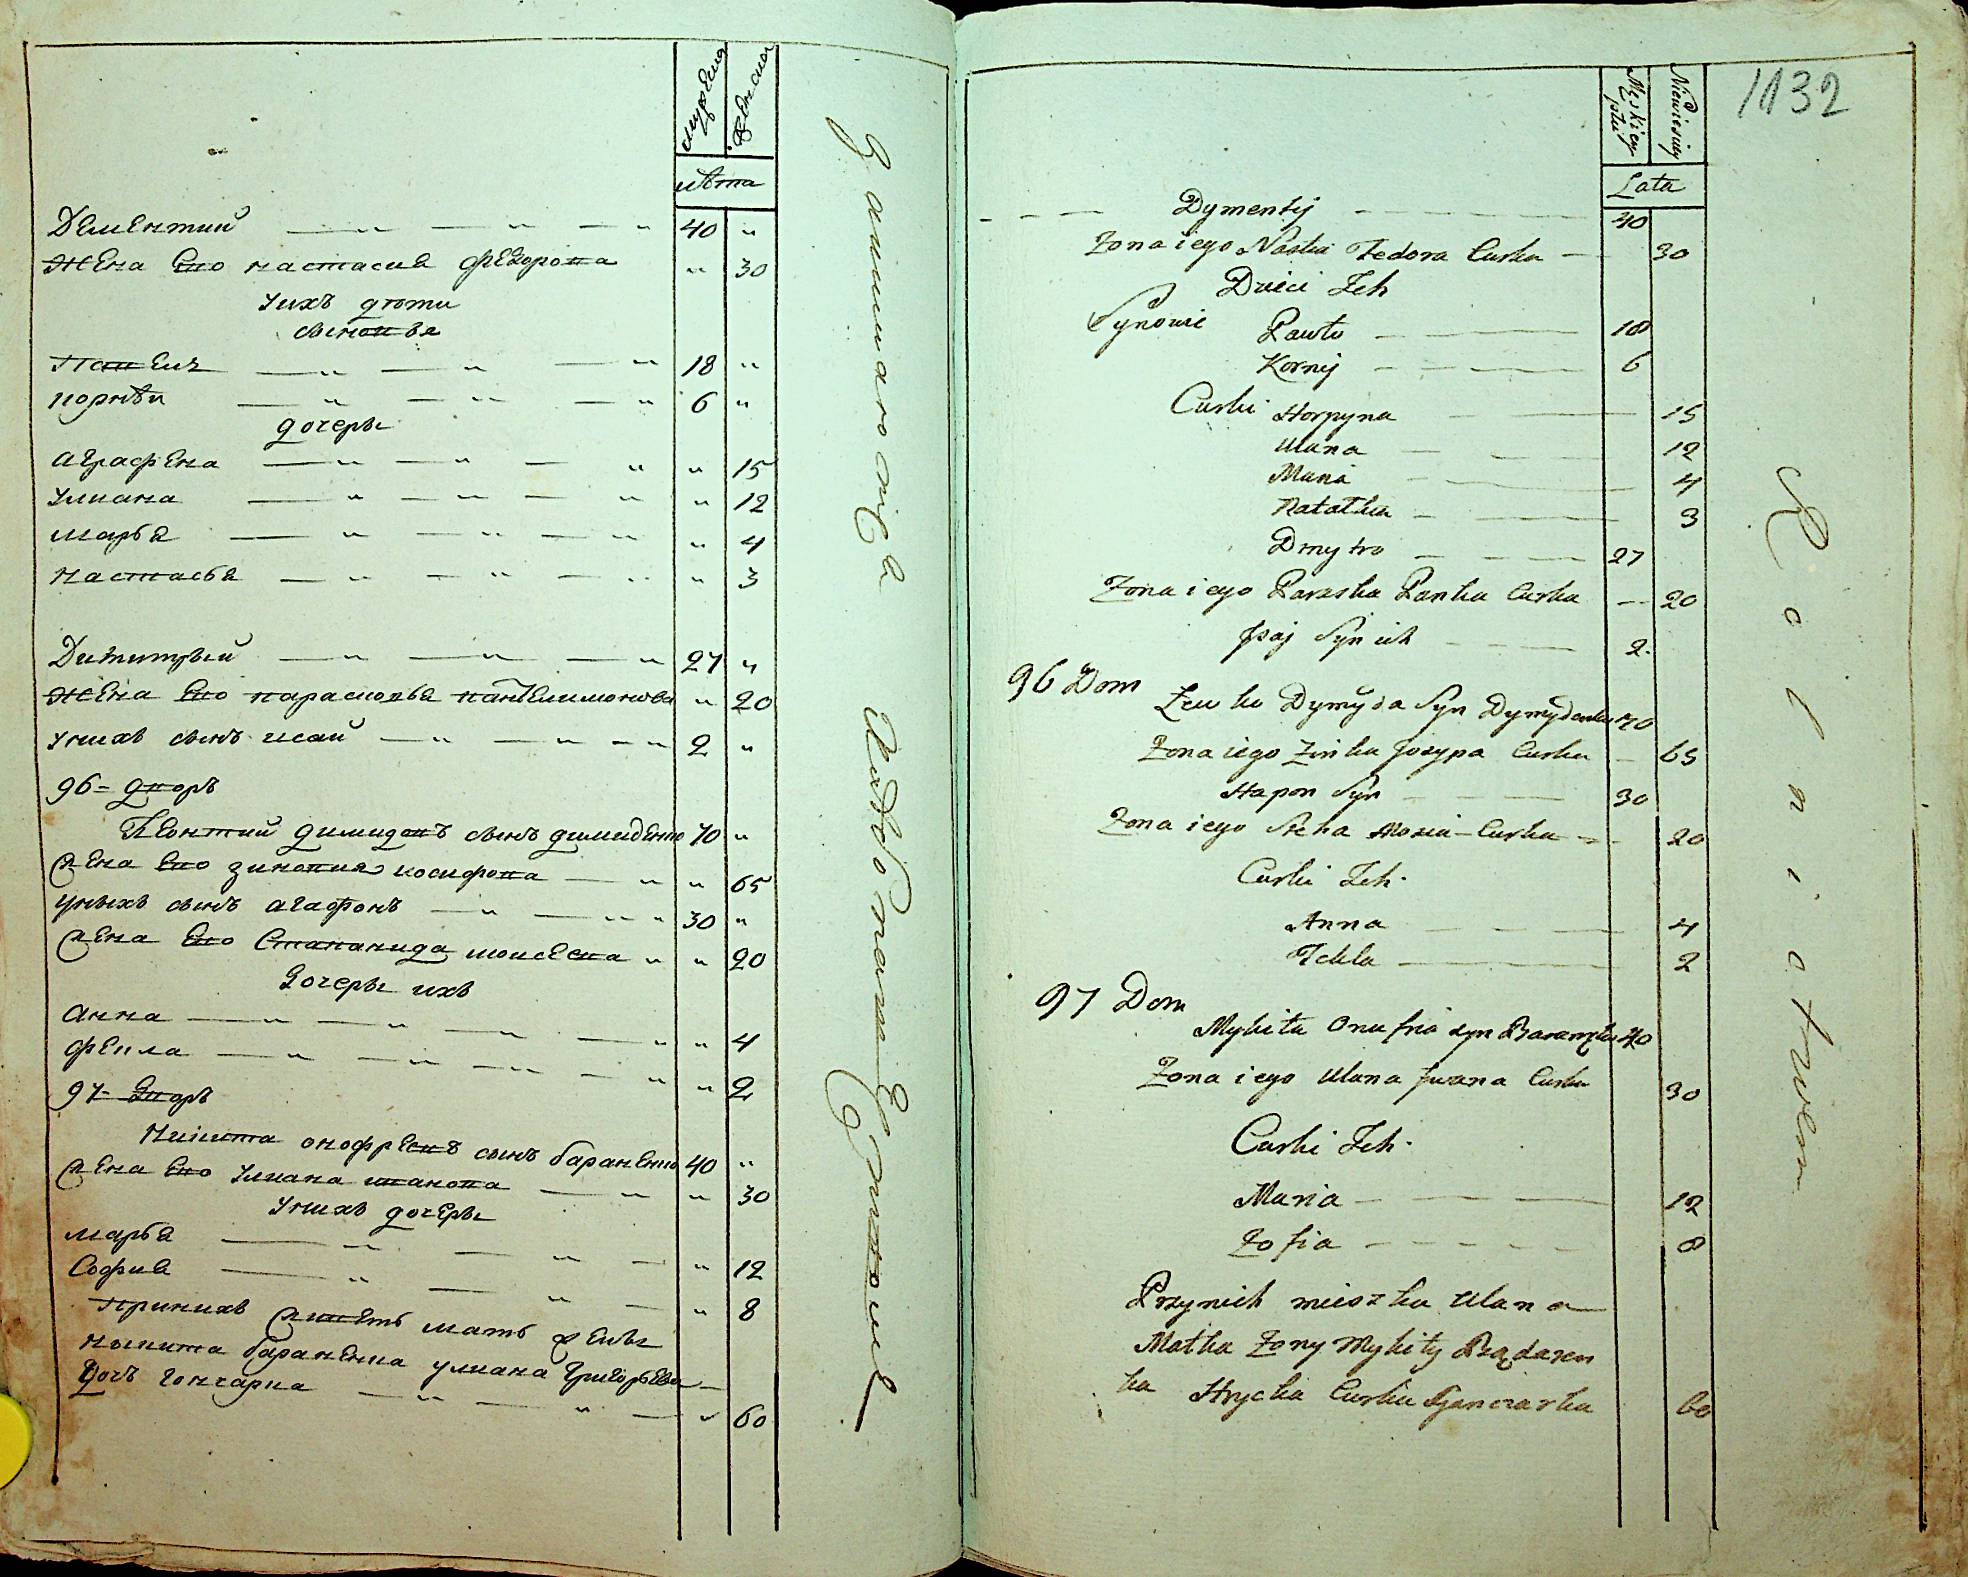 мужеска
женска
лѣта
Дементий 40 "
жена ево настасия федорова " 30
Уихъ дети
сыновья
Павелъ 18 "
корнѣй 6 "
дочеры
аграфена " 15
Улиана " 12
марья " 4
настасья " 3
Димитрый 27 "
жена ево парасковья пантелимонова " 20
Унихъ сынъ исай 2 "
96 = дворъ
Леонтий димидовъ сынъ димиденко 70 "
жена ево зиновия иосифова " 65
Уныхъ сынъ агафонъ 30 "
жена ево Стапанида моисеева " 20
Дочеры ихъ
Анна " 4
фекла " 2
97 = Дворъ
Никита онофреевъ сынъ бараненко 40 "
жена ево Улиана иванова " 30
Унихъ дочеры
марья " 12
София " 8
Принихъ живетъ мать жены
никита бараненка улиана Григорьева
Дочъ гончарка " 60
1132
Męskiey płci
Niewiesciey
Lata
Dymentij 40
Zona iego Nastia Fedora Curka 30
Dzieci Ich
Synowie Pawło 18
Kornij 6
Curki Horpyna 15
Ulana 12
Maria 4
Natałka 3
Dmytro 27
Zona iego Paraska Panka Curka 20
Isaj Syn ich 2
96 Dom
Lewko Dymyda Syn Dymydenko 70
Zona iego Zinka Jozypa Curka 65
Hapon Syn 30
Zona iego Steha Mosia Curka 20
Curki Ich
Anna 4
Tekla 2
97 Dom
Mykita Onufria syn Baranęko 40
Zona iego Ulana Iwana Curka 30
Curki Ich
Maria 12
Zofia 8
Przynich mieszka Ulana
Matka Zony Mykity
ka Hrycka Curka Ganczarka 60